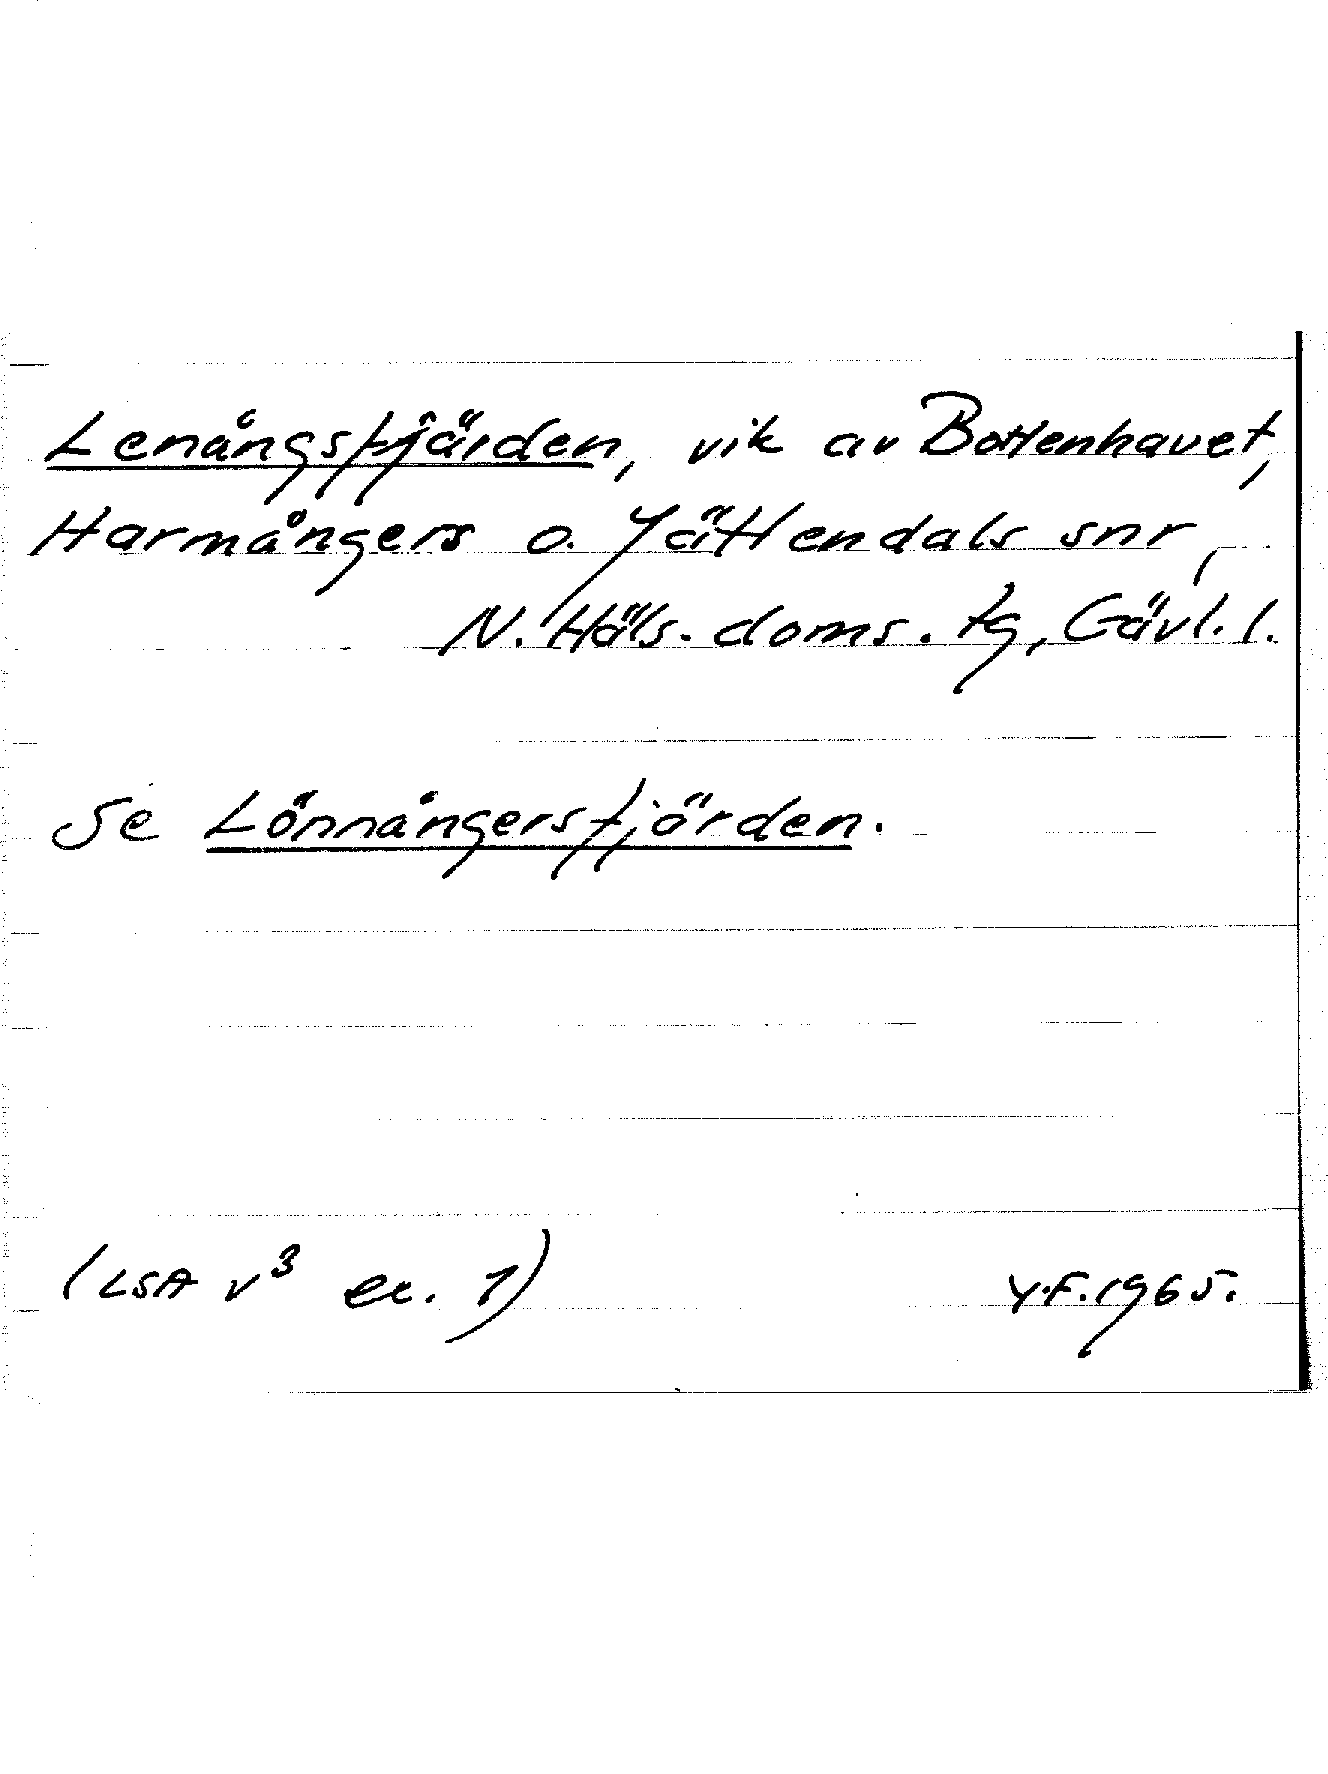 Lenångsfjärden, vik av Bottenhavet,
Harmångers o. Jättendals snr,
N. Häls. doms. tg, Gävl. l.
Se Lönnångersfjärden.
(LSA v³ ex. 1) Y.F. 1965.